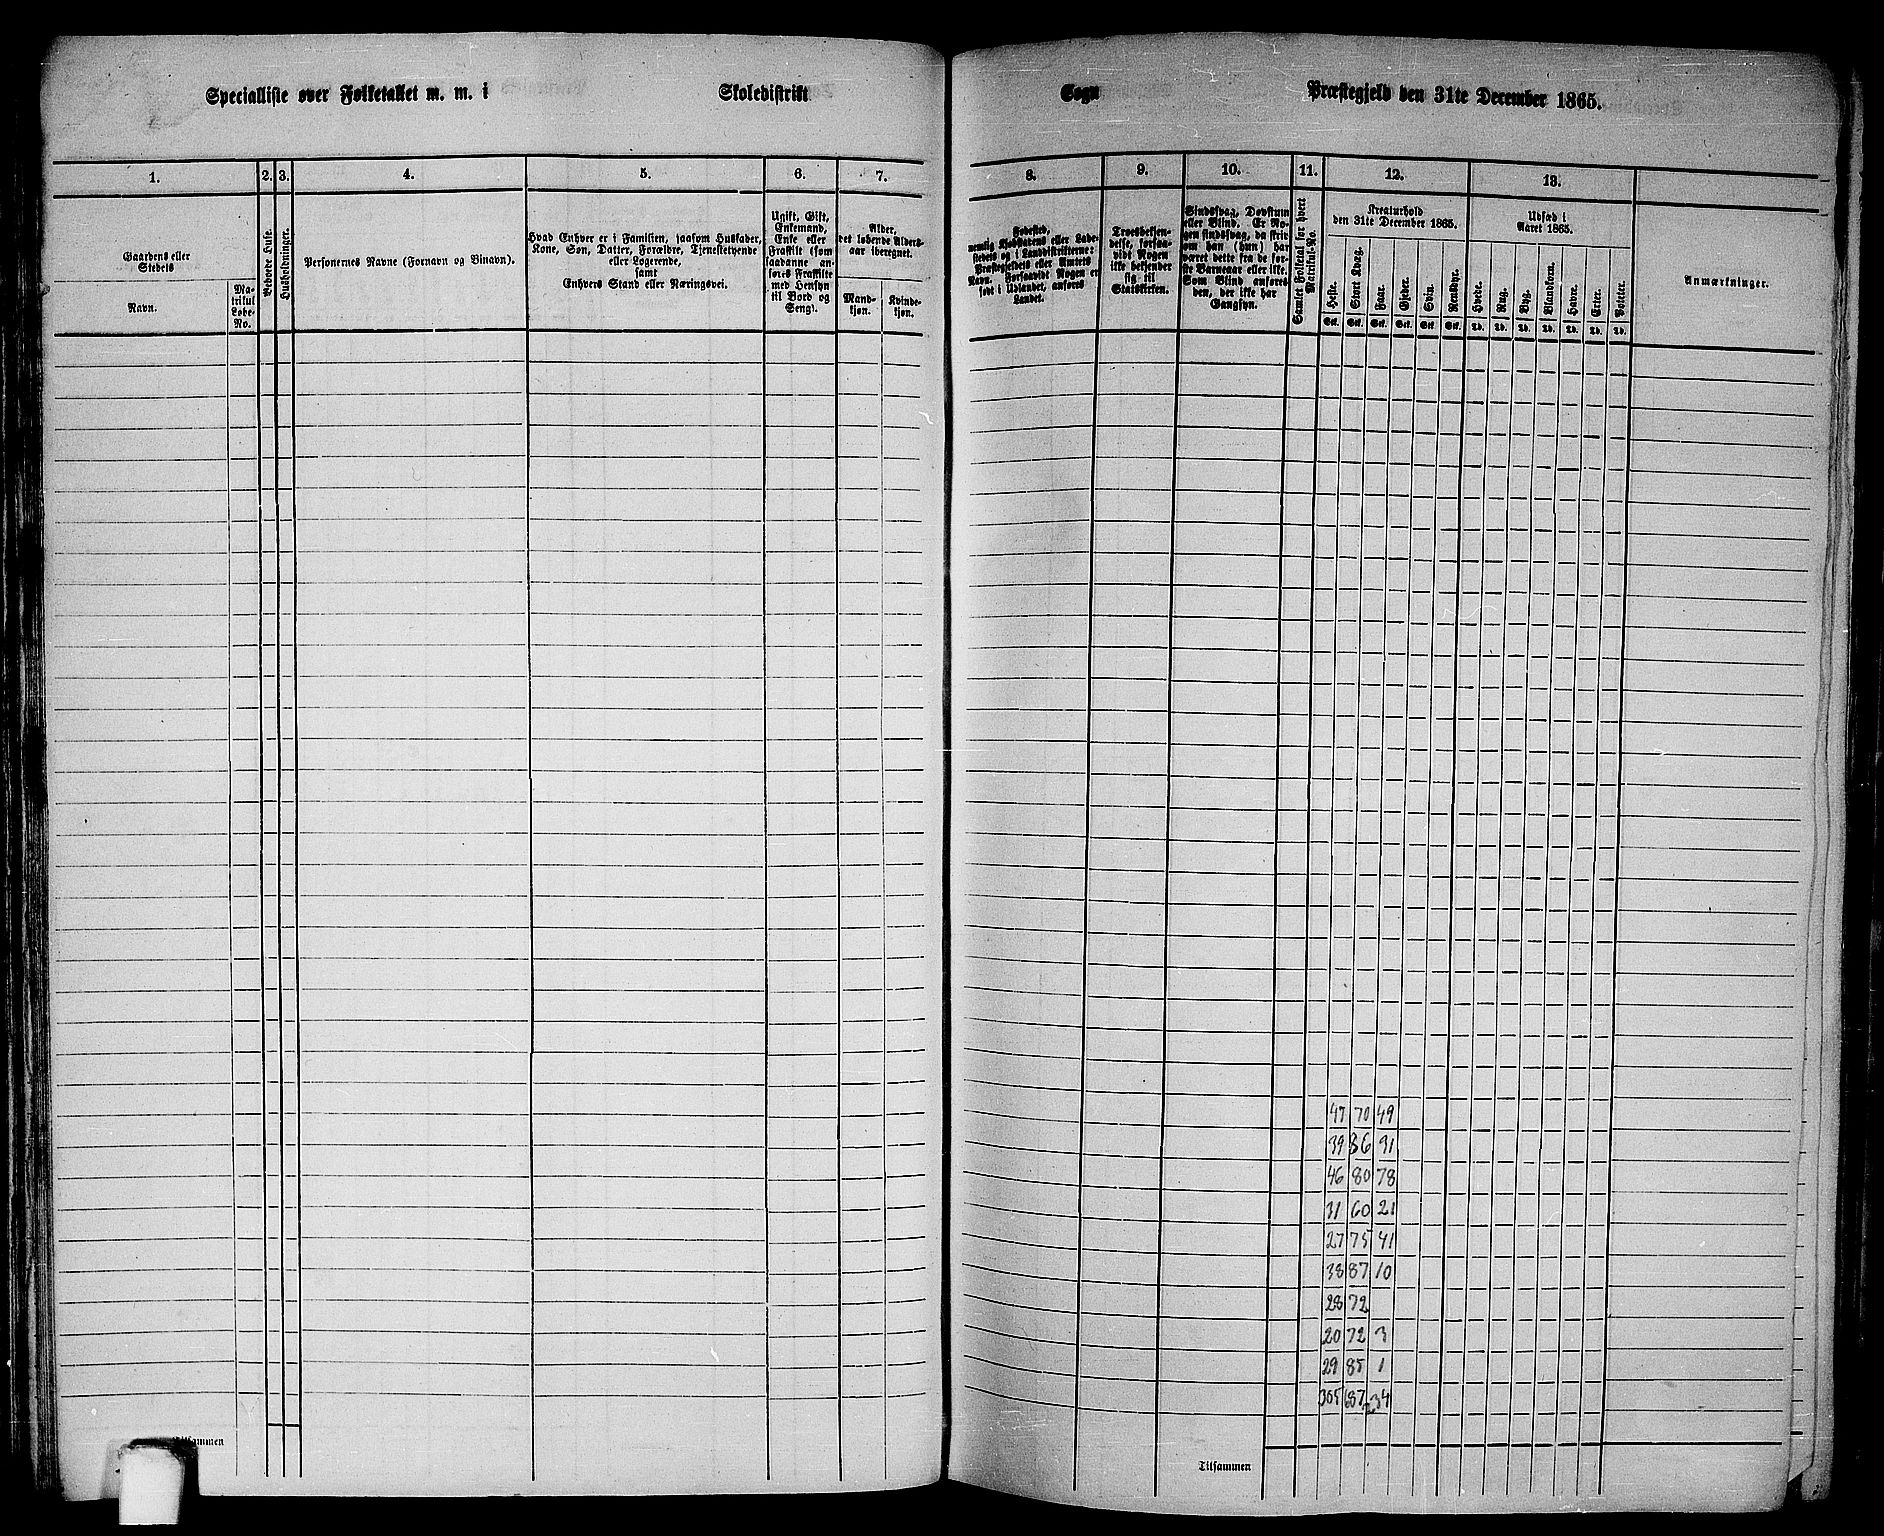 Specialliste over Folketallet m. m. i Skoledistrikt Sogn Præstegjeld den 31te December 1865.
1. 2. 3. 4. 5. 6. 7. 8. 9. 10. 11. 12. 13.
Gaardens eller
Stedets
Navn.
Ma-
trikul
Løbe-
No.
Beboede Huse.
Husholdninger.
Personernes Navne (Fornavn og Binavn).
Hvad Enhver er i Familien, saasom Husfader,
Kone, Søn, Datter, Forældre, Tjenestetyende
eller Logerende,
samt
Enhvers Stand eller Næringsvei.
Ugift, Gift,
Enkemand,
Enke eller
Fraskilt (som
saadanne an-
føres Fraskilte
med Hensyn
til Bord og
Seng).
Alder,
det løbende Alders-
aar iberegnet.
Mand-
kjøn.
Kvinde-
kjøn.
Fødested,
nemlig Kjøbstadens eller Lade-
stedets og i Landdistrikterne:
Præstegjeldets eller Amtets
Navn. Forsaavidt Nogen er
født i Udlandet, anføres
Landet.
Troesbekjen-
delse, forsaa-
vidt Nogen
ikke bekjender
sig til
Statskirken.
Sindssvag, Døvstum
eller Blind. Er No-
gen sindssvag, da skriv
om han (hun) har
været dette fra de før-
ste Barneaar eller ikke.
Som Blind anføres
den, der ikke har
Gangsyn.
Samlet Folketal for hvert
Matrikul-No.
Kreaturhold
den 31te December 1865.
Heste. Stort Kvæg. Faar. Gjeder. Svin. Rensdyr.
Stk. Stk. Stk. Stk. Stk. Stk.
Udsæd i
Aaret 1865.
Hvede. Rug. Byg. Blandkorn. Havre. Erter. Poteter.
Td. Td. Td. Td. Td. Td. Td.
Anmærkninger.
47 70 49
39 86 31
46 80 78
31 60 21
27 75 41
38 87 10
28 72
20 72 3
29 85 1
305 687 234
Tilsammen
Tilsammen